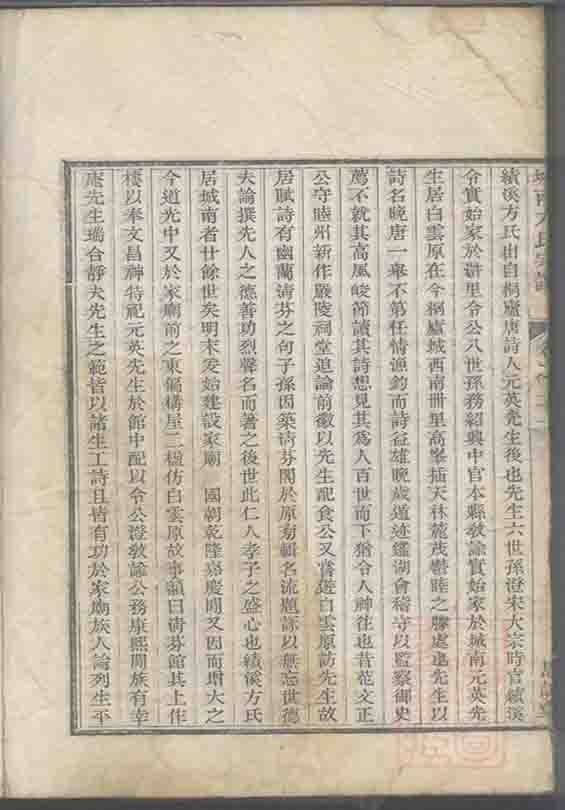 城南方氏宗譜
績溪方氏出自桐廬唐詩人元英先生後也先生六世孫澄宋大宗時官績溪
令實始家於縣里令公八世孫務紹興中官本縣敎諭實始家於城南元英先
生居白雲原在今桐廬城西南卅里高峯插天林麓茂鬱睦之勝處也先生以
詩名晚唐一舉不第任情漁釣而詩益雄晚歲遁迹鑑湖會稽守以監察御史
薦不就其高風峻節讀其詩想見其爲人百世而下猶令人神往也昔范文正
公守睦州新作嚴陵祠堂追論前徽以先生配食公又嘗遊白雲原訪先生故
居賦詩有幽蘭淸芬之句子孫因築淸芬閣於原刱輯名流題詠以無忘世德
夫論撰先人之德善功烈聲名而著之後世此仁人孝子之盛心也績溪方氏
居城南者廿餘世矣明末爰始建設家廟 國朝乾隆嘉慶間又因而增大之
今道光中又於家廟前之東偏構屋二楹仿白雲原故事額曰淸芬館其上作
樓以奉文昌神特祀元英先生於館中配以令公澄敎諭公務康熙間族有幸
庵先生瑞合靜夫先生之範皆以諸生工詩且皆有功於家廟族人論列生平